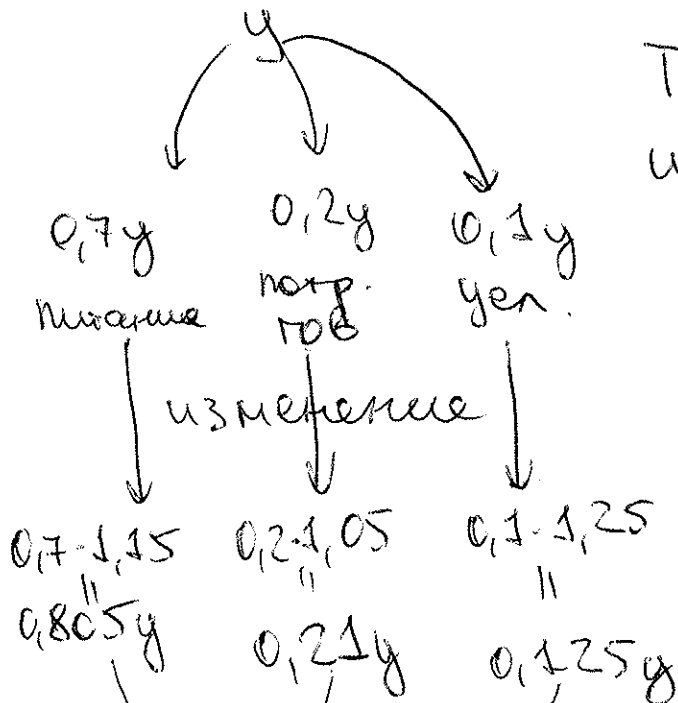 у
Т
и
0,7у 0,2у 0,1у
питание потр. усл.
тов
изменение
0,7·1,15 0,2·1,05 0,1·1,25
= = =
0,805у 0,21у 0,125у